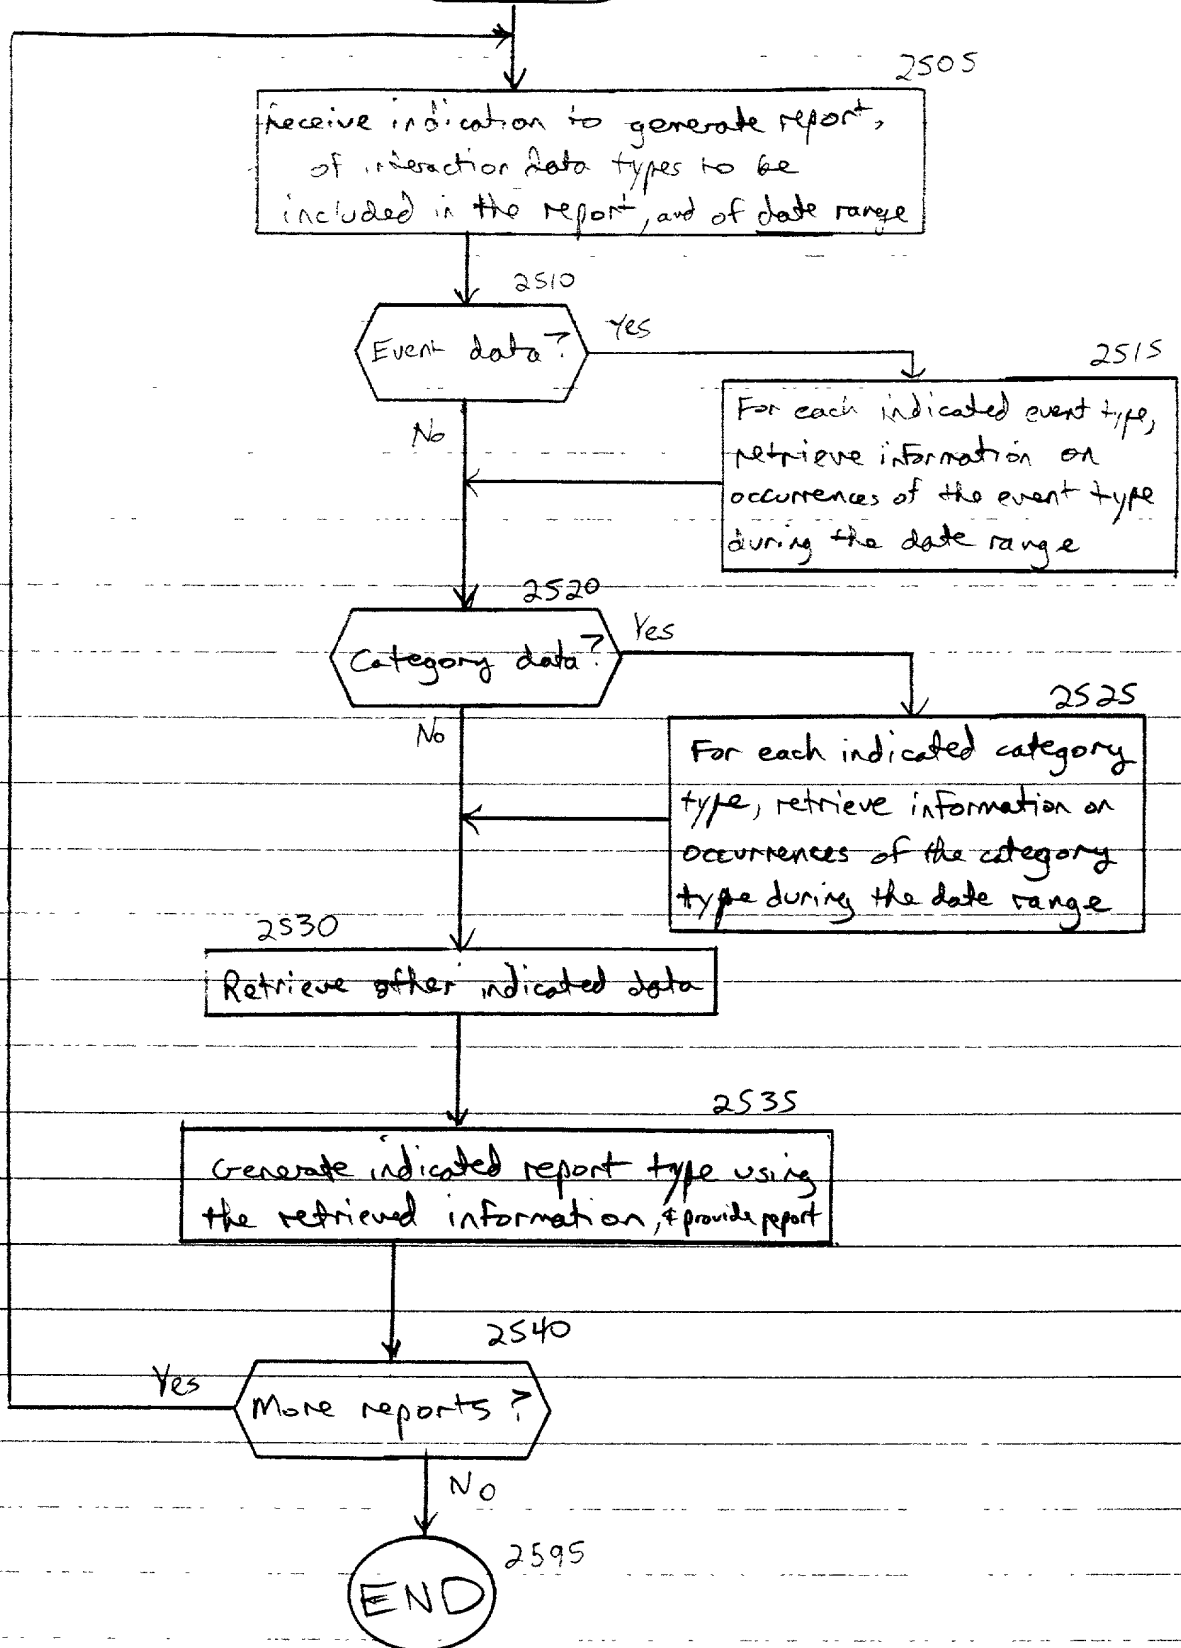 2505
Receive indication to generate report,
of interaction data types to be
included in the report, and of date range
2510
Event data?
Yes
No
2515
For each indicated event type,
retrieve information on
occurrences of the event type
during the date range
2520
Category data?
Yes
No
2525
For each indicated category
type, retrieve information on
occurrences of the category
type during the date range
2530
Retrieve other indicated data
2535
Generate indicated report type using
the retrieved information, & provide report
2540
Yes
More reports?
No
2595
END